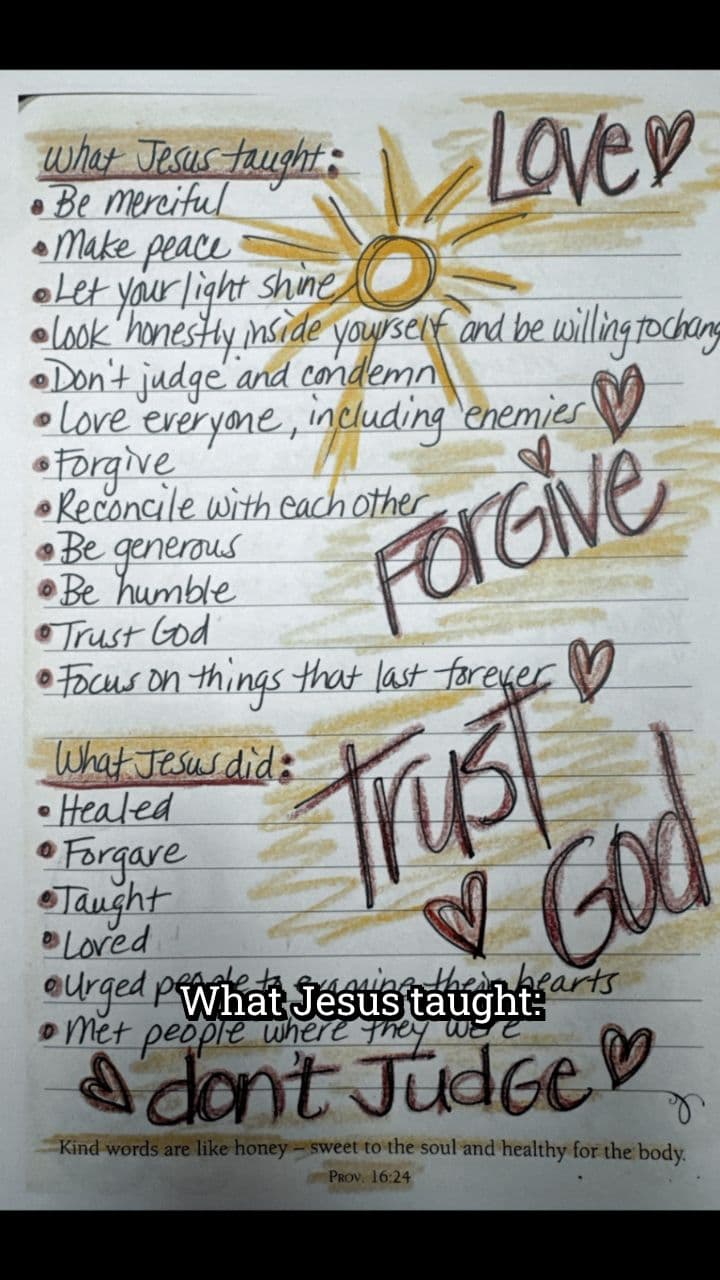 Love
What Jesus taught:
• Be merciful
• Make peace
• Let your light shine
• Look honestly inside yourself and be willing to chang
• Don't judge and condemn
• Love everyone, including enemies
• Forgive
• Reconcile with each other
Forgive
• Be generous
• Be humble
• Trust God
• Focus on things that last forever
Trust
God
What Jesus did:
• Healed
• Forgave
• Taught
• Loved
• Urged people to examine their hearts
What Jesus taught:
• Met people where they were
don't Judge
Kind words are like honey – sweet to the soul and healthy for the body.
Prov. 16:24